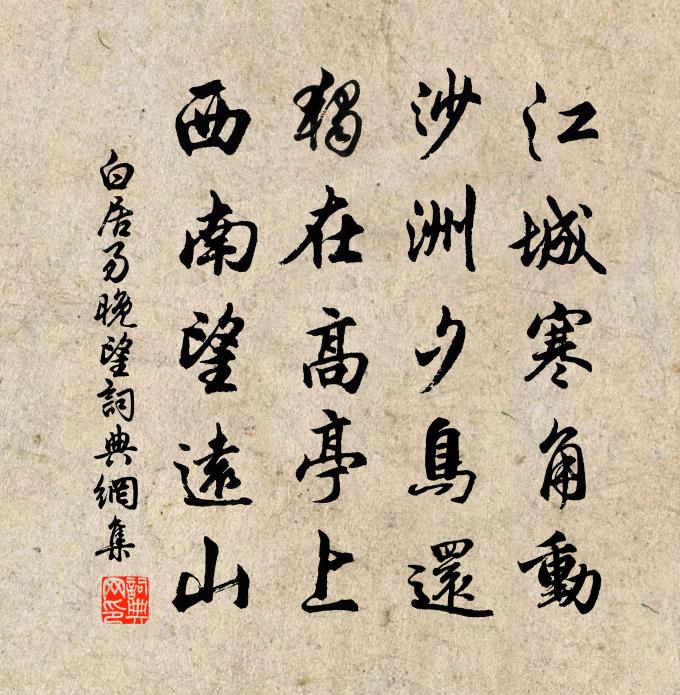 江城寒角動
沙洲夕鳥還
獨在高亭上
西南望遠山
白居易晚望詞典網集
詞典
网印